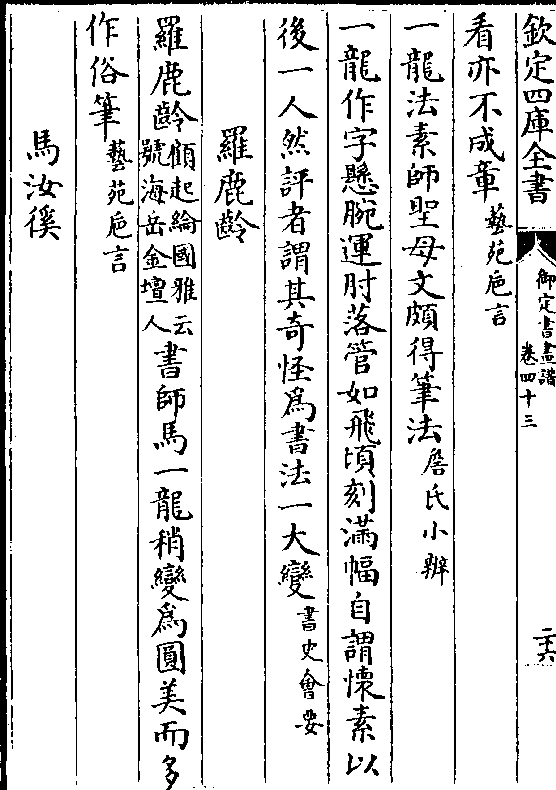 欽定四庫全書
御定書畫譜
卷四十三
二十六
看亦不成章藝苑巵言
一龍法素師聖母文頗得筆法詹氏小辨
一龍作字懸腕運肘落管如飛頃刻滿幅自謂懷素以
後一人然評者謂其奇怪為書法一大變書史會要
羅鹿齡
羅鹿齡顧起綸國雅云號海岳金壇人書師馬一龍稍變為圓美而多
作俗筆藝苑巵言
馬汝徯